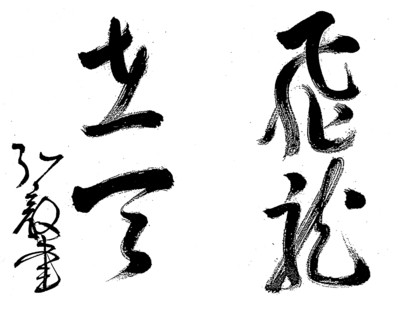 飛龍
在天
弘毅書